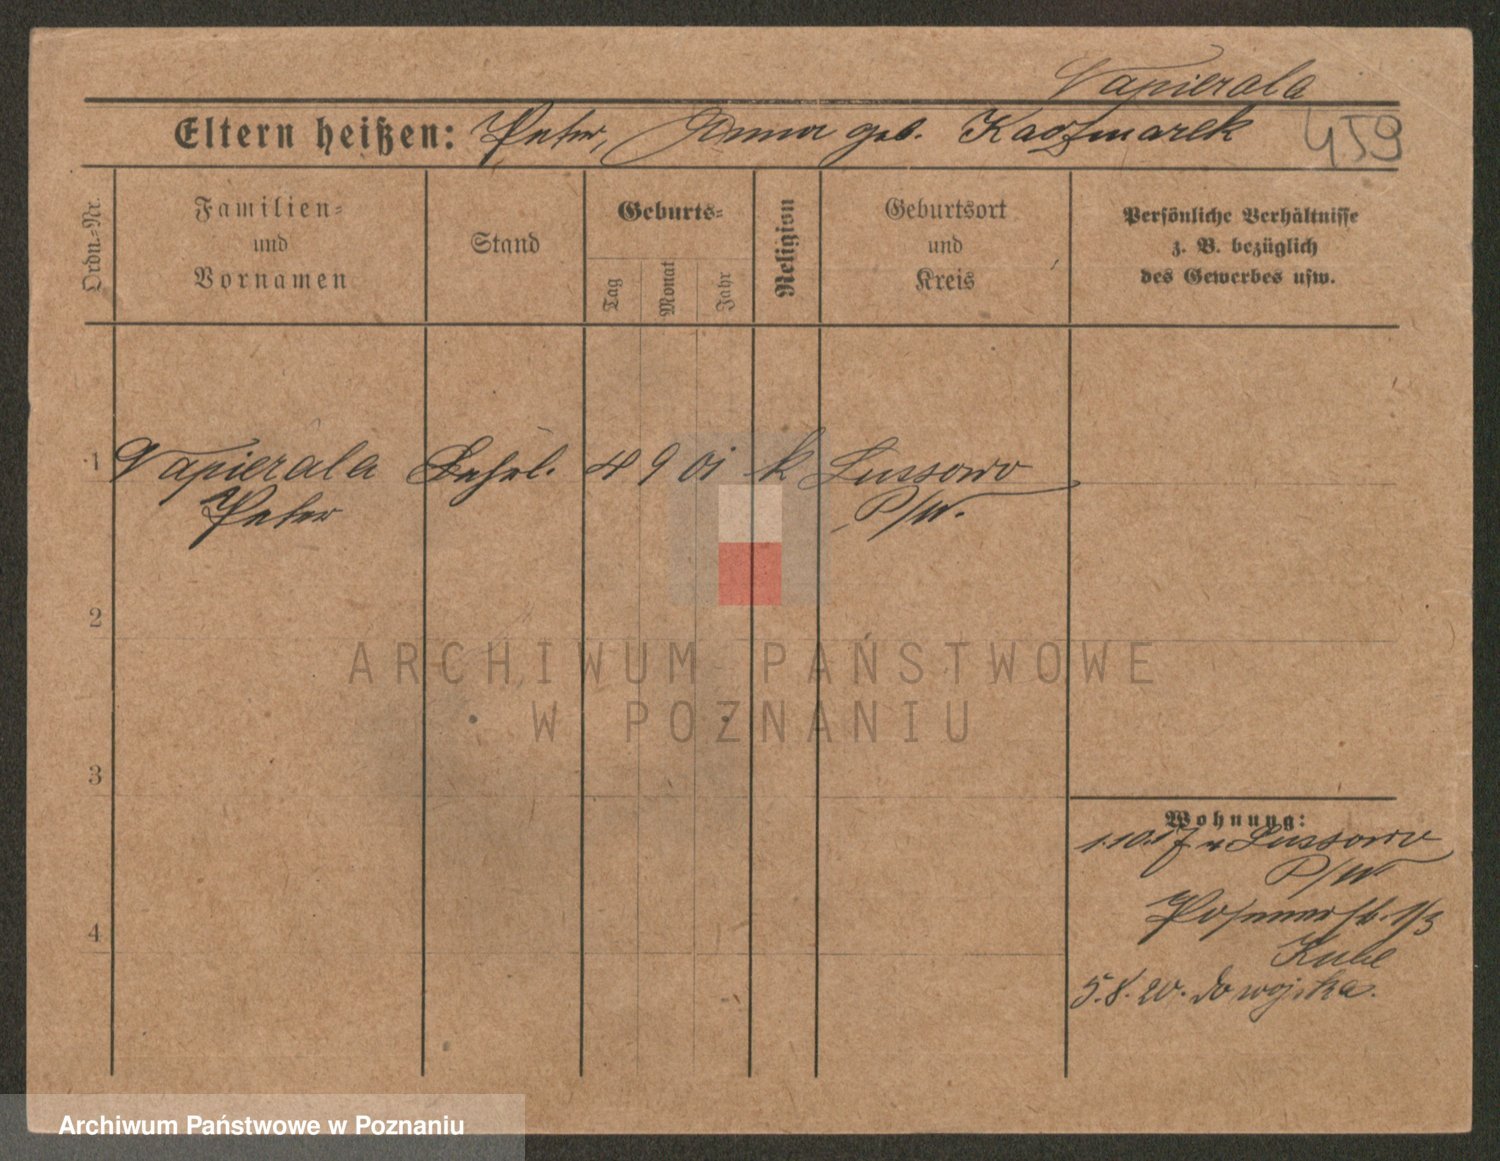 Vapierala
Eltern heißen: Peter, Anna geb. Kaczmarek
459
Ordn.-Nr.
Familien-
und
Vornamen
Stand
Geburts-
Tag
Monat
Jahr
Religion
Geburtsort
und
Kreis
Persönliche Verhältnisse
z. B. bezüglich
des Gewerbes usw.
1 Vapierala 4 9 01 k Lussowo
Peter P/W.
2
3
4
ARCHIWUM PAŃSTWOWE
W POZNANIU
Wohnung:
1.10.17 v Lussowo
P/W
Posenerstr. 1/3
Kube
5.8.20. do wojska.
Archiwum Państwowe w Poznaniu